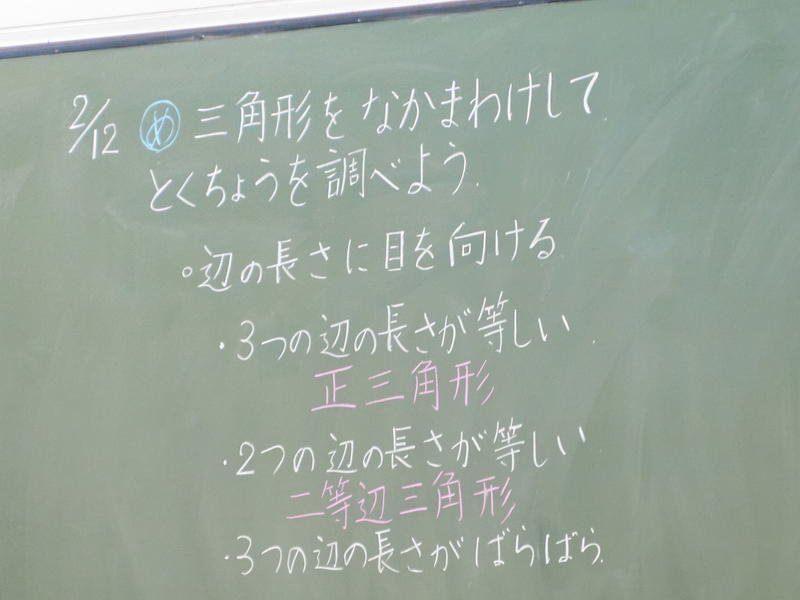 2/12 め 三角形をなかまわけして
とくちょうを調べよう.
○辺の長さに目を向ける
・3つの辺の長さが等しい.
正三角形
・2つの辺の長さが等しい
二等辺三角形
・3つの辺の長さがばらばら.